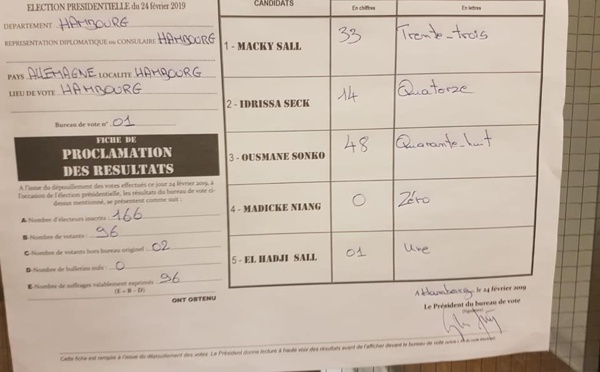 ELECTION PRESIDENTIELLE du 24 février 2019
DEPARTEMENT HAMBOURG
REPRESENTATION DIPLOMATIQUE OU CONSULAIRE HAMBOURG
PAYS ALLEMAGNE LOCALITE HAMBOURG
LIEU DE VOTE HAMBOURG
Bureau de vote n° 01
FICHE DE
PROCLAMATION
DES RESULTATS
A l'issue du dépouillement des votes effectués ce jour 24 février 2019, à
l'occasion de l'élection présidentielle, les résultats du bureau de vote ci-
dessus mentionné, se présentent comme suit :
A- Nombre d'électeurs inscrits : 166
B- Nombre de votants : 96
C- Nombre de votants hors bureau originel : 02
D- Nombre de bulletins nuls : 0
E- Nombre de suffrages valablement exprimés : 96
(E = B - D)
ONT OBTENU
CANDIDATS En chiffres En lettres
1 - MACKY SALL 33 Trente-trois
2 - IDRISSA SECK 14 Quatorze
3 - OUSMANE SONKO 48 Quarante-huit
4 - MADICKE NIANG 0 Zéro
5 - EL HADJI SALL 01 Une
A Hambourg, le 24 février 2019
Le Président du bureau de vote
(Signature)
Cette fiche est remplie à l'issue du dépouillement des votes. Le Président donne lecture à haute voix des résultats avant de l'afficher devant le bureau de vote